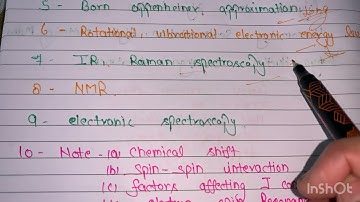 5 - Born oppenheimer approximation
6 - Rotational, vibrational electronic energy
7 - IR, Raman spectroscopy
8 - NMR.
9 - electronic spectroscopy
10 - Note - (a) Chemical shift
(b) Spin - spin interaction
(c) factors affecting J
InShOt